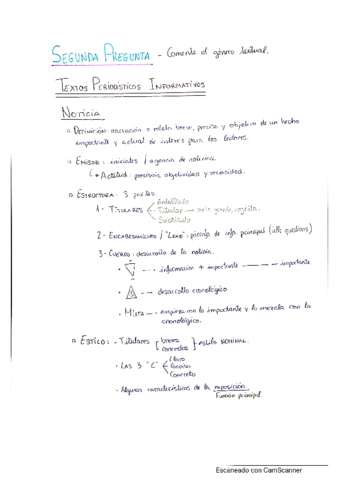 SEGUNDA PREGUNTA - Comente el género textual.
TEXTOS PERIODÍSTICOS INFORMATIVOS
NOTICIA
DEFINICIÓN: narración o relato breve, preciso y objetivo de un hecho
importante y actual de interés para los lectores.
EMISOR: iniciales / agencia de noticias
Actitud: precisión, objetividad y veracidad.
ESTRUCTURA: 3 partes:
Antetítulo
1- TITULARES Titular
Subtítulo
2- ENCABEZAMIENTO / "LEAD": párrafo de info. principal (wh questions)
3- CUERPO: desarrollo de la noticia.
--- información + importante --- - importante
A --- desarrollo cronológico
MIXTA -- empieza con lo importante y lo mezcla con lo
cronológico.
ESTILO: Titulares breves concretos estilo NOMINAL.
Claro
LAS 3 "C" Conciso
Concreto
Algunas características de la exposición.
Función principal.
Escaneado con CamScanner